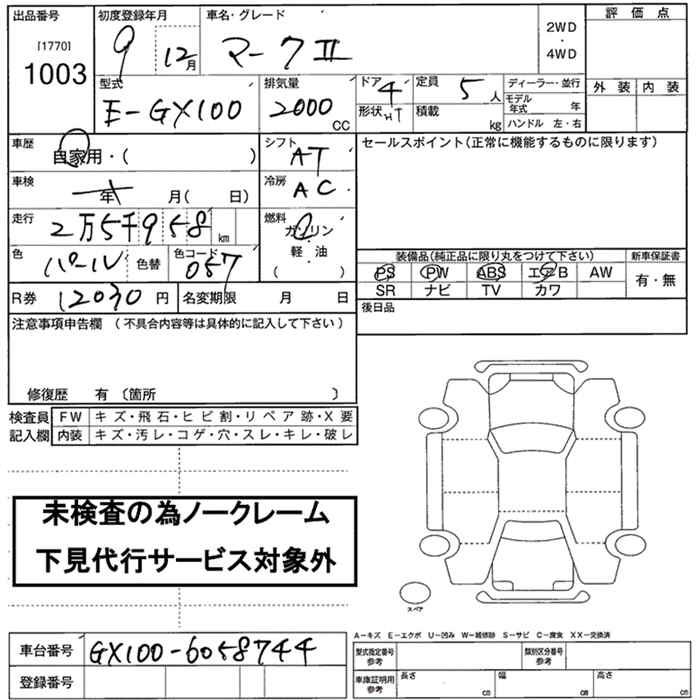 出品番号 初度登録年月 車名・グレード 評価点
[1770] 1003 9 12月 マークⅡ 2WD・4WD
外装 内装
型式 E-GX100 排気量 2000 CC ドア 4 形状 HT 定員 5人 積載 kg ディーラー・並行 モデル年式 年 ハンドル 左・右
車歴 自家用・( ) シフト AT セールスポイント(正常に機能するものに限ります)
車検 年 月( 日) 冷房 AC
走行 2万5千958 km 燃料 ガソリン 軽・油 ( )
色 パール 色替 色コード 057 装備品(純正品に限り丸をつけて下さい) 新車保証書
PS PW ABS エアB AW 有・無
SR ナビ TV カワ
R券 12030円 名変期限 月 日 後日品
注意事項申告欄 (不具合内容等は具体的に記入して下さい)
修復歴 有 〔箇所 〕
検査員記入欄 FW キズ・飛石・ヒビ割・リペア跡・X要
内装 キズ・汚レ・コゲ・穴・スレ・キレ・破レ
未検査の為ノークレーム
下見代行サービス対象外
スペア
A-キズ E-エクボ U-凹み W-補修跡 S-サビ C-腐食 XX-交換済
車台番号 GX100-6058744 型式指定番号 参考 類別区分番号 参考
登録番号 車庫証明用 参考 長さ cm 幅 cm 高さ cm